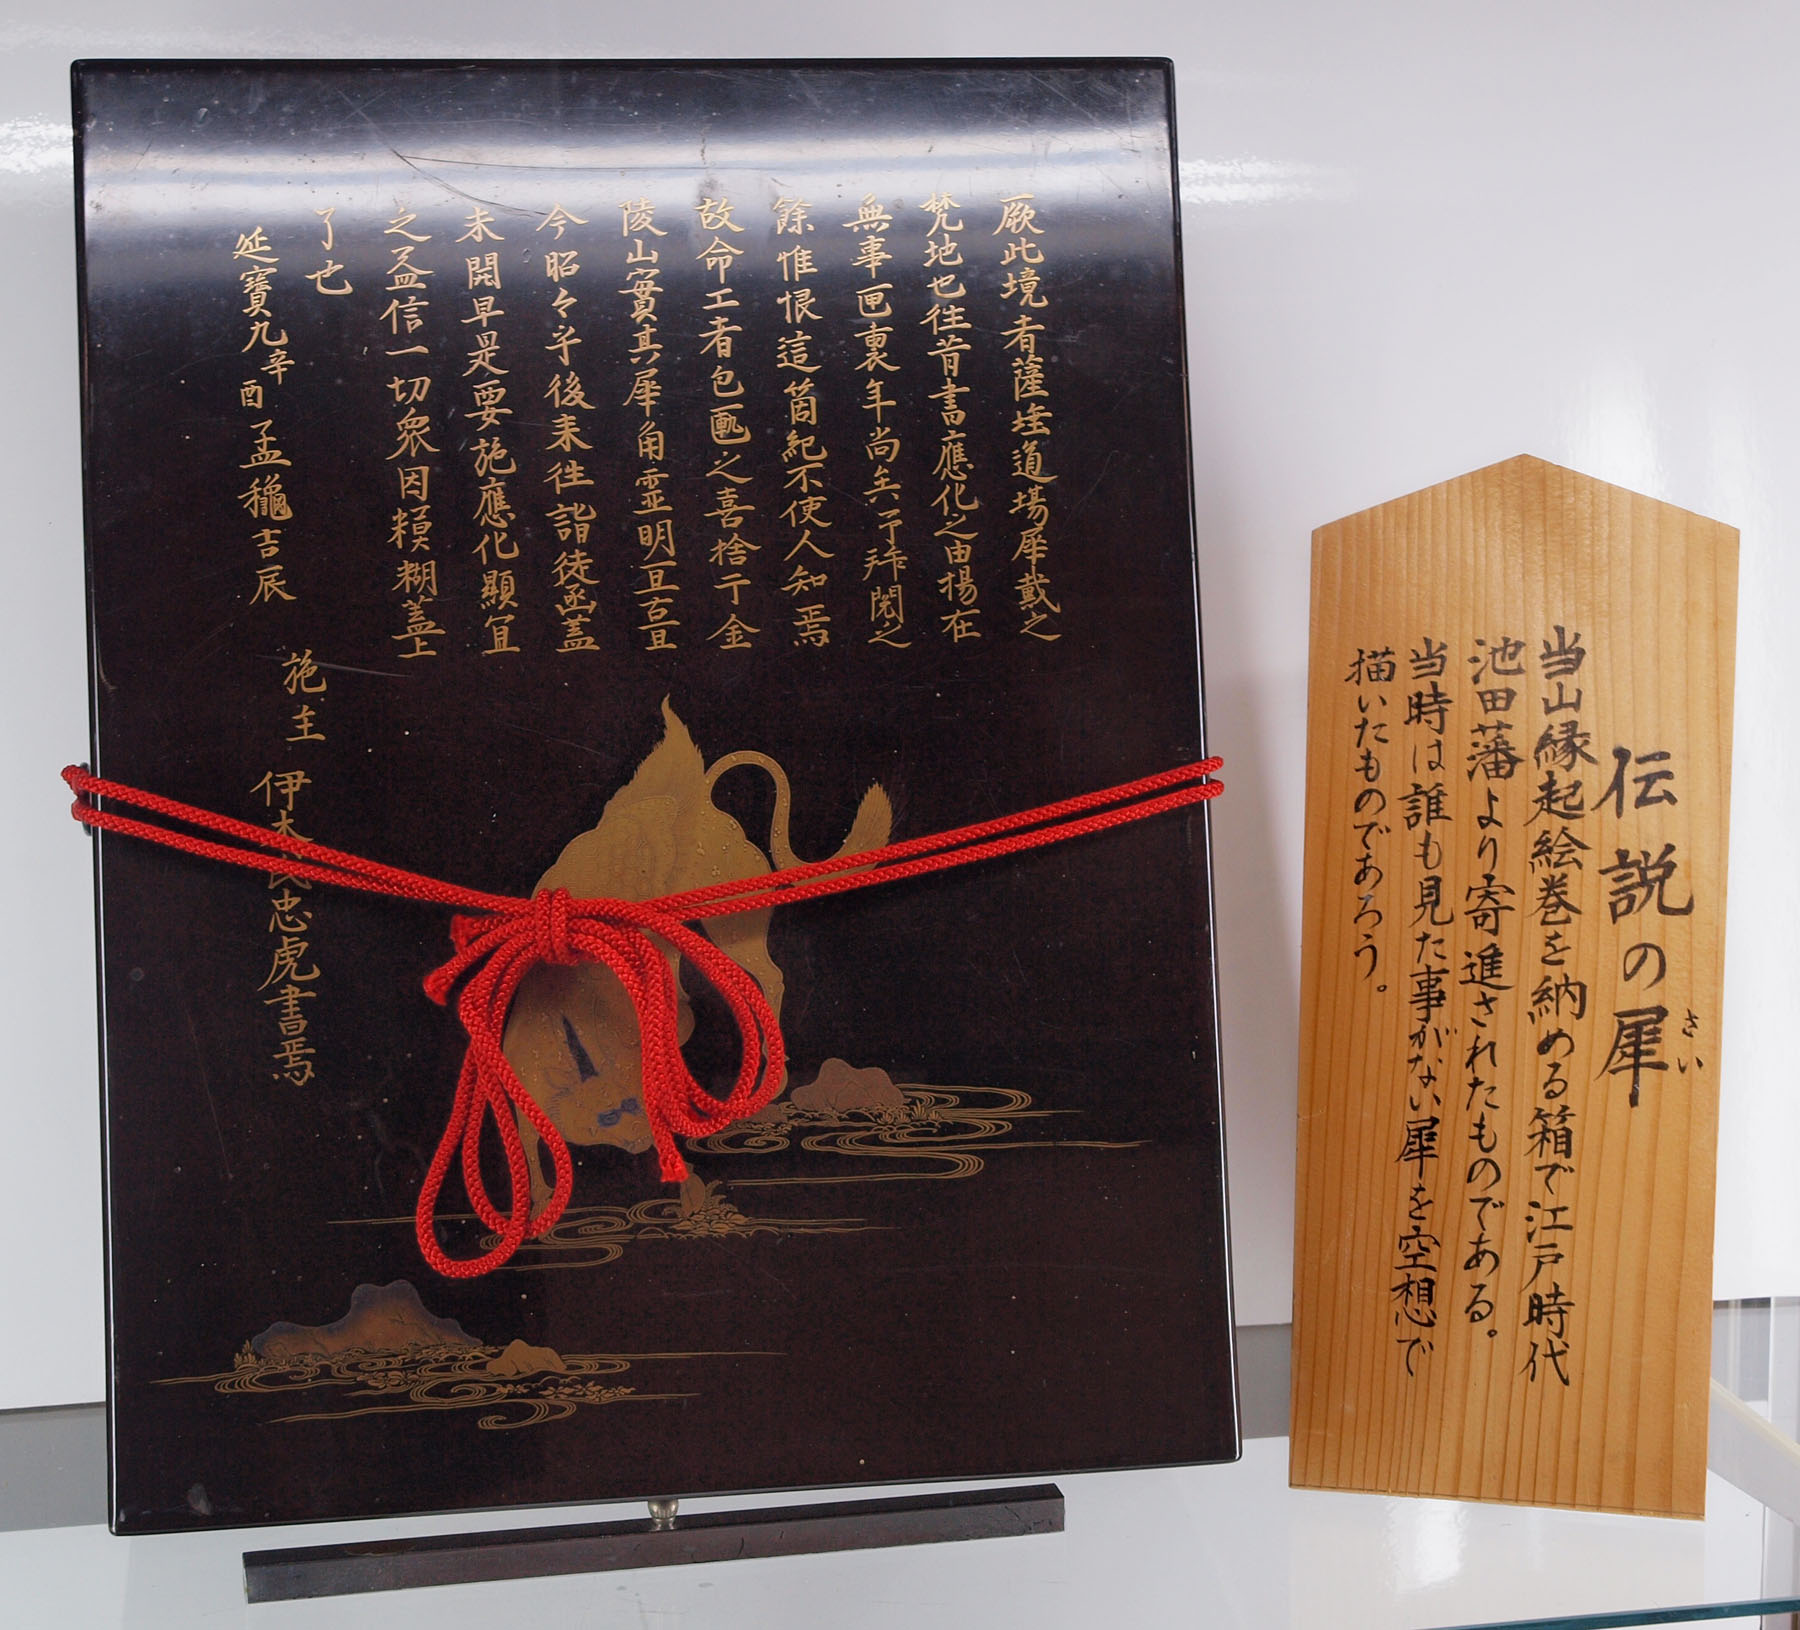 厥此境者薩埵道場犀戴之
梵地也往昔書應化之由揚在
無事匣裏年尚矣予拜閲之
餘惟恨這箇紀不使人知焉
故命工者包匭之喜捨于金
陵山實其犀角霊明亘古亘
今昭々乎後来往詣徒函蓋
未開早是要施應化顯宜
之益信一切衆因模糊蓋上
了也
延寶九辛酉孟穐吉辰
施主 伊木氏忠虎書焉
伝説の犀
さい
当山縁起絵巻を納める箱で江戸時代
池田藩より寄進されたものである。
当時は誰も見た事がない犀を空想で
描いたものであろう。